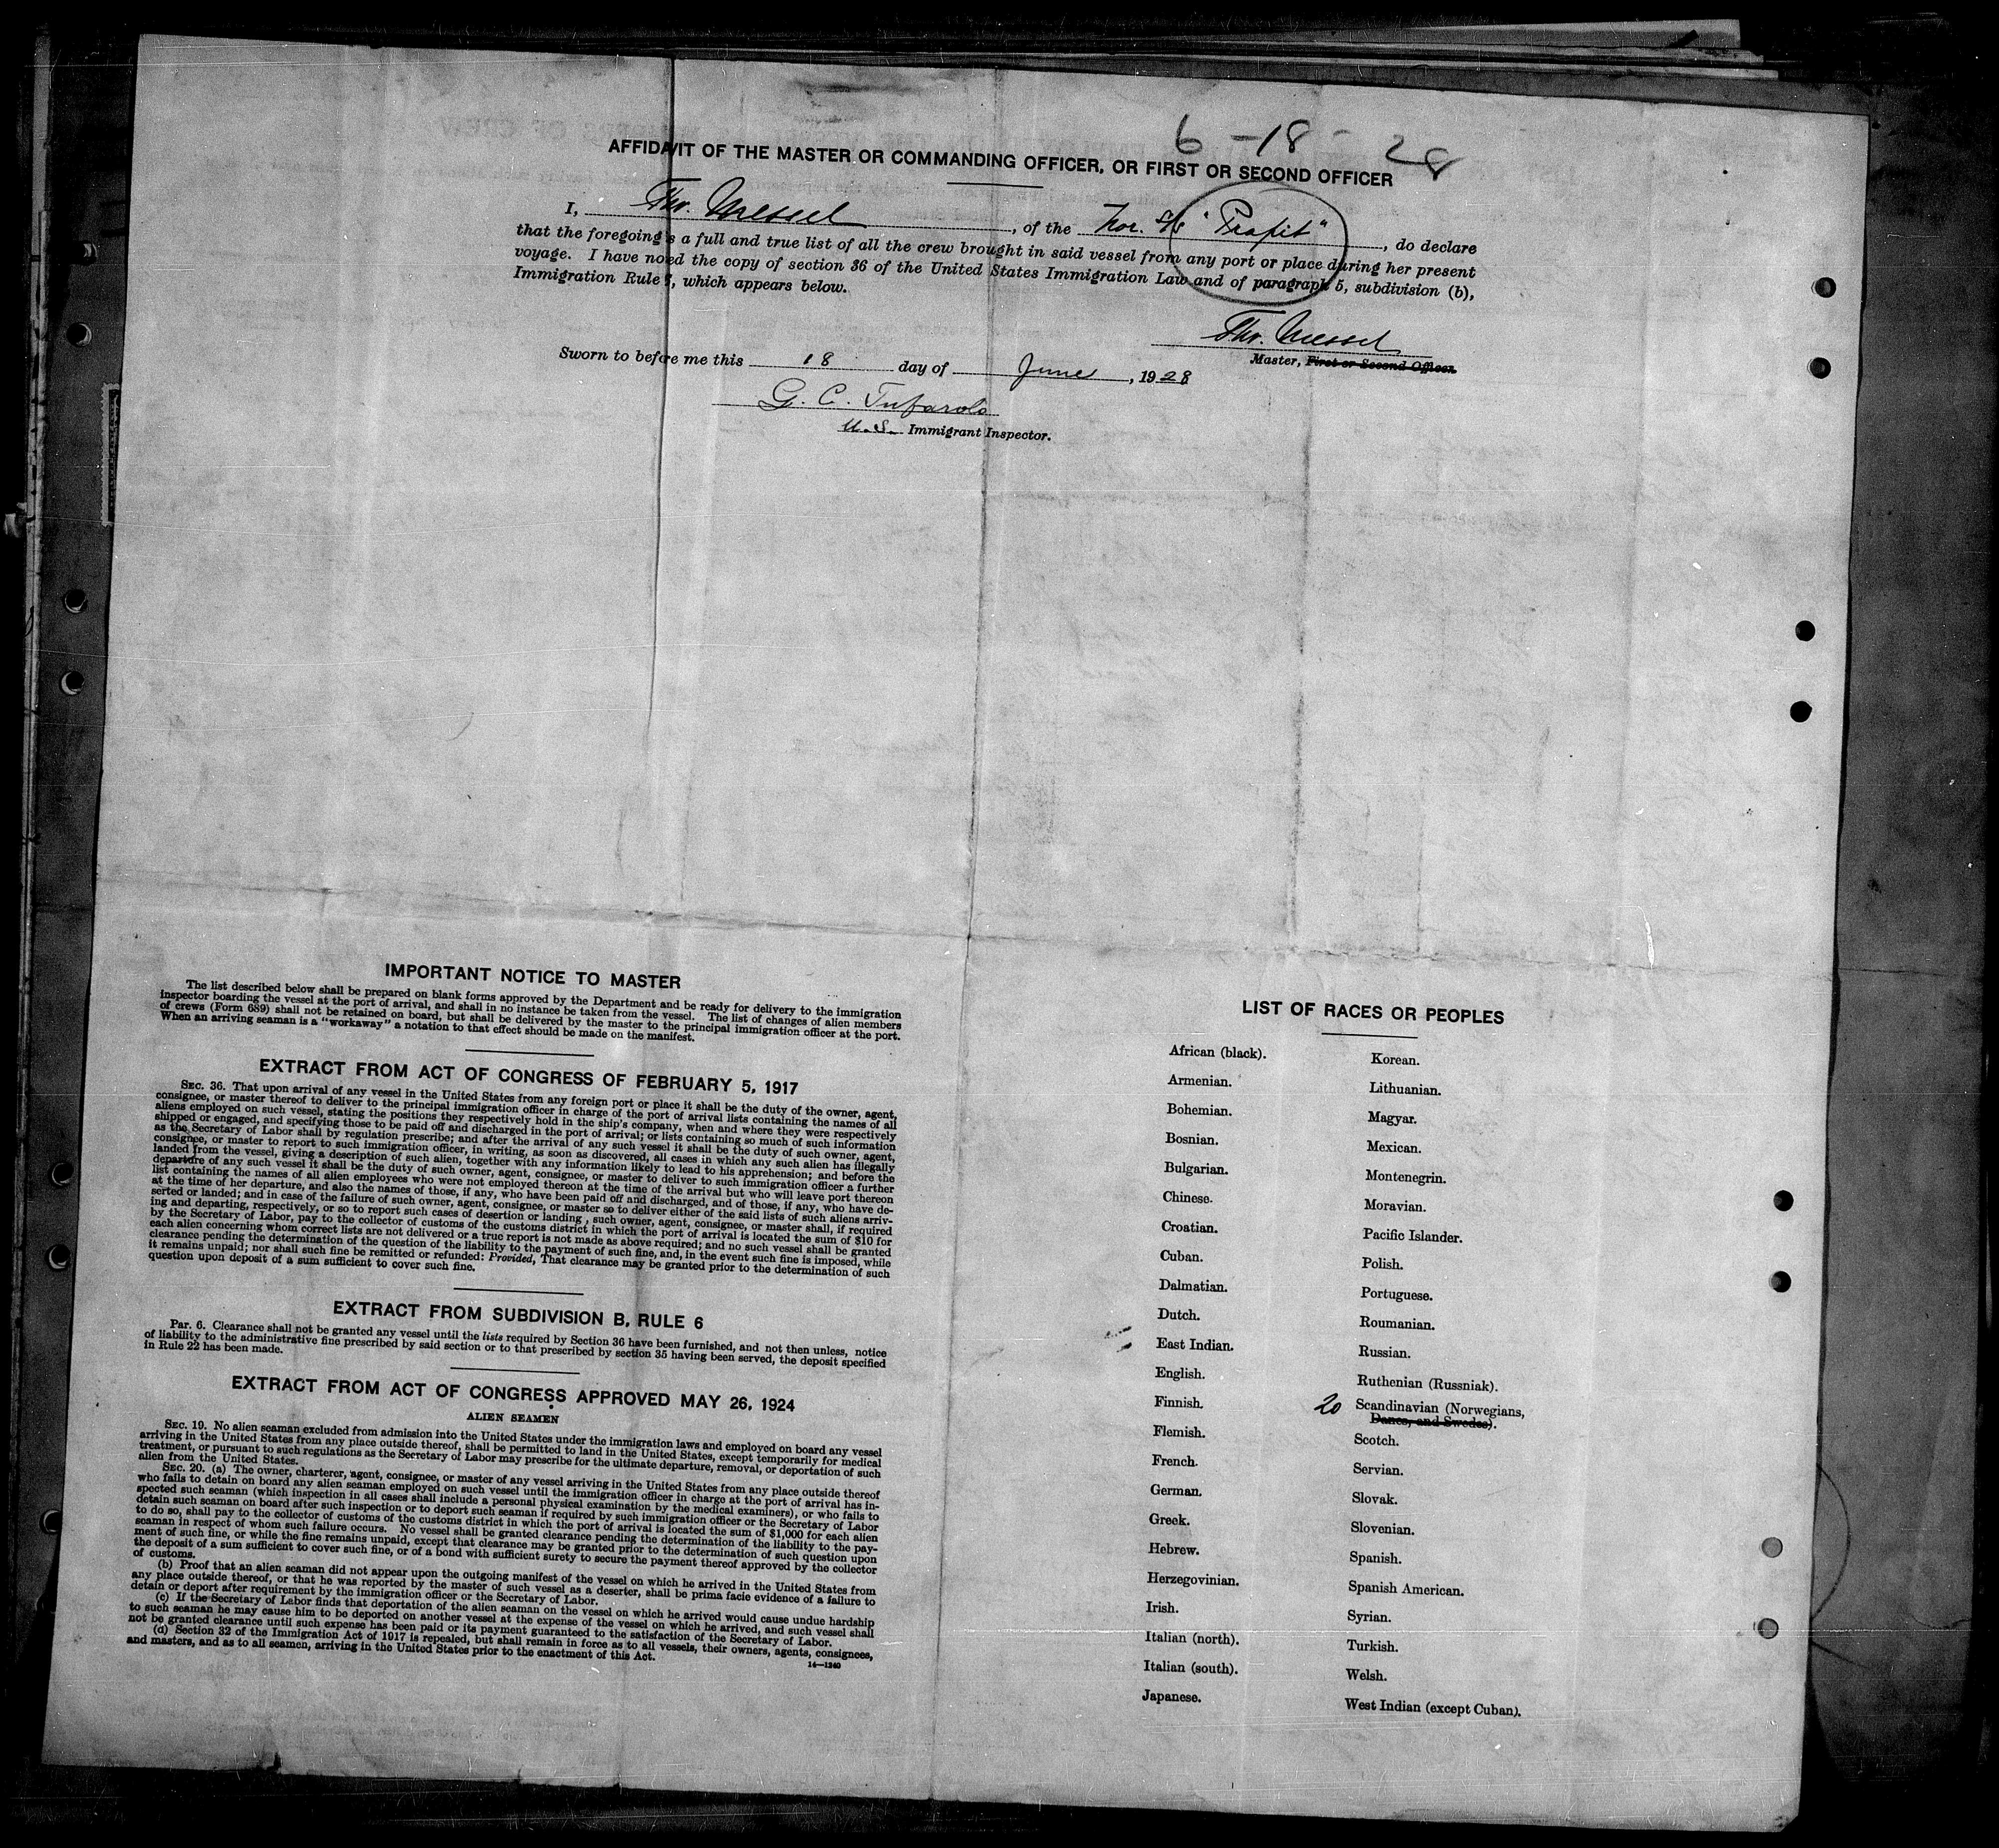 6-18-28
AFFIDAVIT OF THE MASTER OR COMMANDING OFFICER, OR FIRST OR SECOND OFFICER
I, Thv. Messel, of the Nor. S/S "Profit", do declare
that the foregoing s a full and true list of all the crew brought in said vessel from any port or place during her present
voyage. I have noed the copy of section 36 of the United States Immigration Law and of paragraph 5, subdivision (b),
Immigration Rule , which appears below.
Thv. Messel
Master, First or Second Officer.
Sworn to before me this 18 day of June, 1928
G. C. Tufarolo
U.S. Immigrant Inspector.
IMPORTANT NOTICE TO MASTER
The list described below shall be prepared on blank forms approved by the Department and be ready for delivery to the immigration
inspector boarding the vessel at the port of arrival, and shall in no instance be taken from the vessel. The list of changes of alien members
of crews (Form 689) shall not be retained on board, but shall be delivered by the master to the principal immigration officer at the port.
When an arriving seaman is a "workaway" a notation to that effect should be made on the manifest.
EXTRACT FROM ACT OF CONGRESS OF FEBRUARY 5, 1917
SEC. 36. That upon arrival of any vessel in the United States from any foreign port or place it shall be the duty of the owner, agent,
consignee, or master thereof to deliver to the principal immigration officer in charge of the port of arrival lists containing the names of all
aliens employed on such vessel, stating the positions they respectively hold in the ship's company, when and where they were respectively
shipped or engaged, and specifying those to be paid off and discharged in the port of arrival; or lists containing so much of such information
as the Secretary of Labor shall by regulation prescribe; and after the arrival of any such vessel it shall be the duty of such owner, agent,
consignee, or master to report to such immigration officer, in writing, as soon as discovered, all cases in which any such alien has illegally
landed from the vessel, giving a description of such alien, together with any information likely to lead to his apprehension; and before the
departure of any such vessel it shall be the duty of such owner, agent, consignee, or master to deliver to such immigration officer a further
list containing the names of all alien employees who were not employed thereon at the time of the arrival but who will leave port thereon
at the time of her departure, and also the names of those, if any, who have been paid off and discharged, and of those, if any, who have de-
serted or landed; and in case of the failure of such owner, agent, consignee, or master so to deliver either of the said lists of such aliens arriv-
ing and departing, respectively, or so to report such cases of desertion or landing, such owner, agent, consignee, or master shall, if required
by the Secretary of Labor, pay to the collector of customs of the customs district in which the port of arrival is located the sum of $10 for
each alien concerning whom correct lists are not delivered or a true report is not made as above required; and no such vessel shall be granted
clearance pending the determination of the question of the liability to the payment of such fine, and, in the event such fine is imposed, while
it remains unpaid; nor shall such fine be remitted or refunded: Provided, That clearance may be granted prior to the determination of such
question upon deposit of a sum sufficient to cover such fine.
EXTRACT FROM SUBDIVISION B, RULE 6
Par. 6. Clearance shall not be granted any vessel until the lists required by Section 36 have been furnished, and not then unless, notice
of liability to the administrative fine prescribed by said section or to that prescribed by section 35 having been served, the deposit specified
in Rule 22 has been made.
EXTRACT FROM ACT OF CONGRESS APPROVED MAY 26, 1924
ALIEN SEAMEN
SEC. 19. No alien seaman excluded from admission into the United States under the immigration laws and employed on board any vessel
arriving in the United States from any place outside thereof, shall be permitted to land in the United States, except temporarily for medical
treatment, or pursuant to such regulations as the Secretary of Labor may prescribe for the ultimate departure, removal, or deportation of such
alien from the United States.
SEC. 20. (a) The owner, charterer, agent, consignee, or master of any vessel arriving in the United States from any place outside thereof
who fails to detain on board any alien seaman employed on such vessel until the immigration officer in charge at the port of arrival has in-
spected such seaman (which inspection in all cases shall include a personal physical examination by the medical examiners), or who fails to
detain such seaman on board after such inspection or to deport such seaman if required by such immigration officer or the Secretary of Labor
to do so, shall pay to the collector of customs of the customs district in which the port of arrival is located the sum of $1,000 for each alien
seaman in respect of whom such failure occurs. No vessel shall be granted clearance pending the determination of the liability to the pay-
ment of such fine, or while the fine remains unpaid, except that clearance may be granted prior to the determination of such question upon
the deposit of a sum sufficient to cover such fine, or of a bond with sufficient surety to secure the payment thereof approved by the collector
of customs.
(b) Proof that an alien seaman did not appear upon the outgoing manifest of the vessel on which he arrived in the United States from
any place outside thereof, or that he was reported by the master of such vessel as a deserter, shall be prima facie evidence of a failure to
detain or deport after requirement by the immigration officer or the Secretary of Labor.
(c) If the Secretary of Labor finds that deportation of the alien seaman on the vessel on which he arrived would cause undue hardship
to such seaman he may cause him to be deported on another vessel at the expense of the vessel on which he arrived, and such vessel shall
not be granted clearance until such expense has been paid or its payment guaranteed to the satisfaction of the Secretary of Labor.
(d) Section 32 of the Immigration Act of 1917 is repealed, but shall remain in force as to all vessels, their owners, agents, consignees,
and masters, and as to all seamen, arriving in the United States prior to the enactment of this Act.
14—1240
LIST OF RACES OR PEOPLES
African (black).
Armenian.
Bohemian.
Bosnian.
Bulgarian.
Chinese.
Croatian.
Cuban.
Dalmatian.
Dutch.
East Indian.
English.
Finnish.
Flemish.
French.
German.
Greek.
Hebrew.
Herzegovinian.
Irish.
Italian (north).
Italian (south).
Japanese.
Korean.
Lithuanian.
Magyar.
Mexican.
Montenegrin.
Moravian.
Pacific Islander.
Polish.
Portuguese.
Roumanian.
Russian.
Ruthenian (Russniak).
20 Scandinavian (Norwegians,
Danes, and Swedes).
Scotch.
Servian.
Slovak.
Slovenian.
Spanish.
Spanish American.
Syrian.
Turkish.
Welsh.
West Indian (except Cuban).